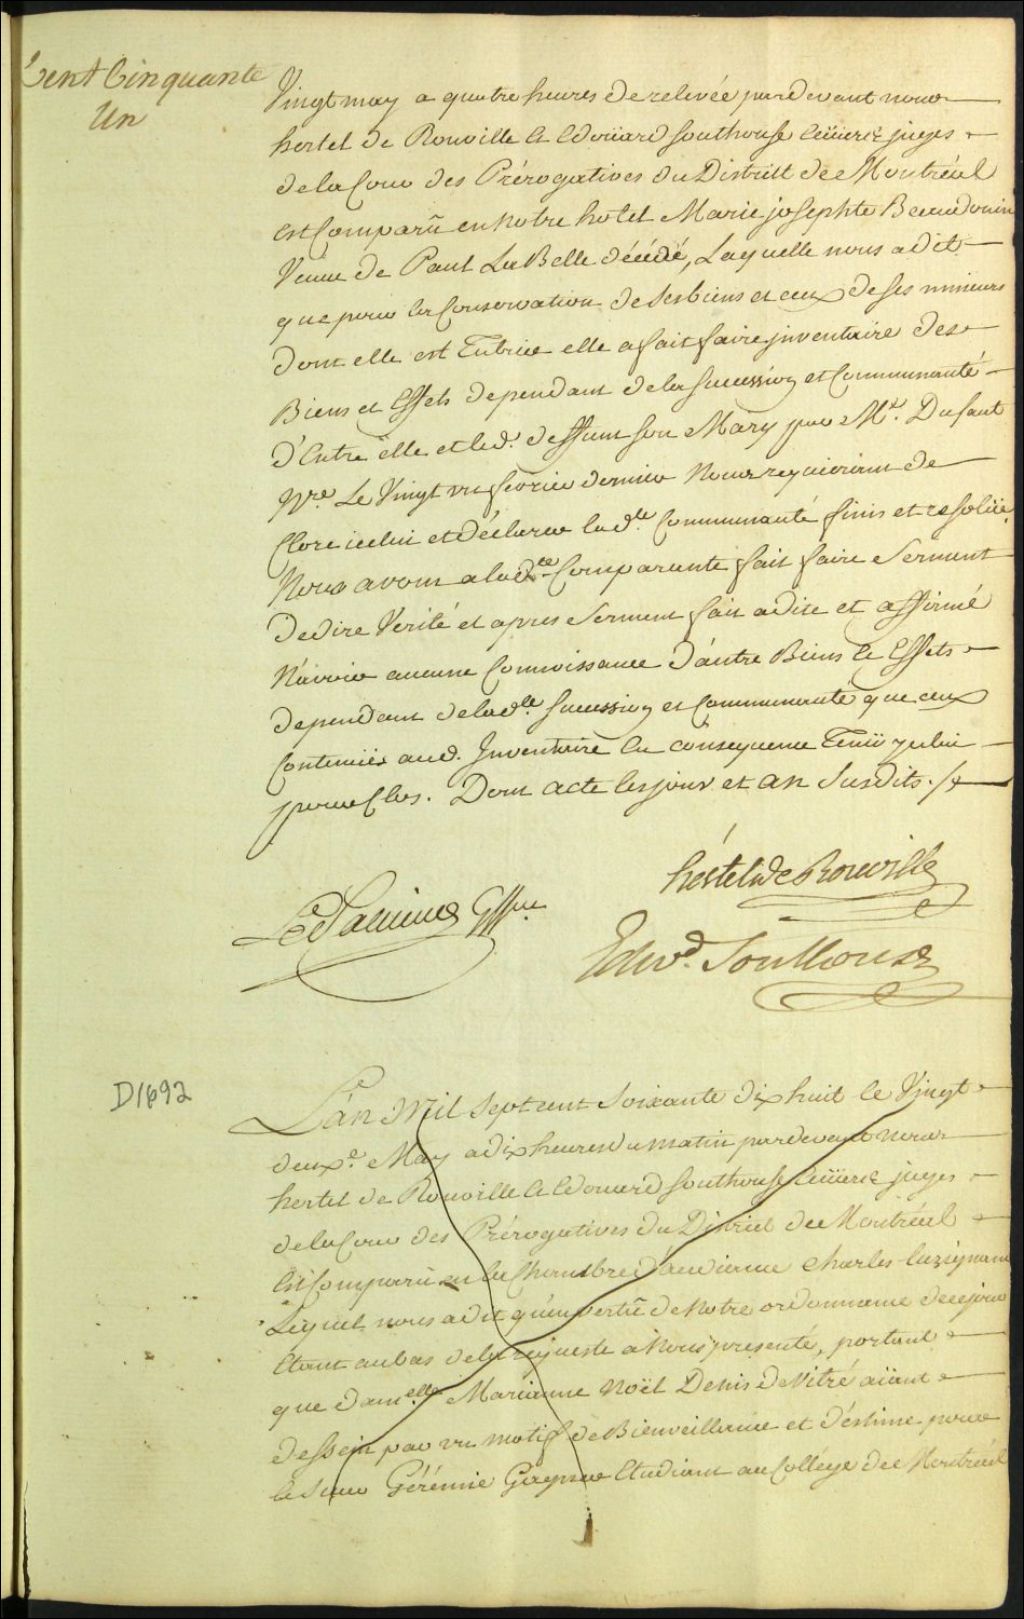 Cent Cinquante
Un
Vingt may a quatre heures de relevée pardevant nous
hertel de Rouville et Edoüard Southouse Ecüiers juges
de la Cour des Prérogatives du District de Montréal
est Comparü en notre hotel Marie josephte Beaudouin
Veuve de Paul LaBelle décédé, Laquelle nous a dit
que pour la Conservation de ses biens et ceux de ses mineurs
dont elle est Tutrice elle a fait faire jnventaire des
Biens et Effets dependant de la succession et Communauté
d'Entre elle et led. deffunt son Mary par Mt. Dufaut
Nre. Le Vingt un fevrier dernier Nous requierant de
Clore icelui et déclarer lad.te Communauté finis et resoluë
Nous avons a lad.te Comparante fait faire Serment
de dire Verité et apres Serment fait a dit et affirmé
N'avoir aucune Connoissance d'autre Biens et Effets
dependant de lad.te succession et Communauté que ceux
Contenuës aud. Inventaire En consequence Tenü jcelui
pour Clos. Dont acte les jour et an Susdits ./.
hertel de Rouville
Edwd. Southouse
D1692
L'an Mil Sept cent Soixante dix huit le Vingt
deuxe. May a dix heures du matin pardevant nous
hertel de Rouville et Edouard Southouse Ecüiers juges
de la Cour des Prérogatives du District de Montréal
Est Comparü en la Chambre d'audience Charles Luzignant
Lequel nous a dit qu'en vertü de Notre ordonnance de ce jour
Etant au bas de la requeste a Nous presenté, portant
que dam.elle Marianne Noël Denis de Vitré aïant
dessein par un motif de Bienveillance et d'éstime pour
le Sieur Gérémie Etudiant au Collége de Montréal